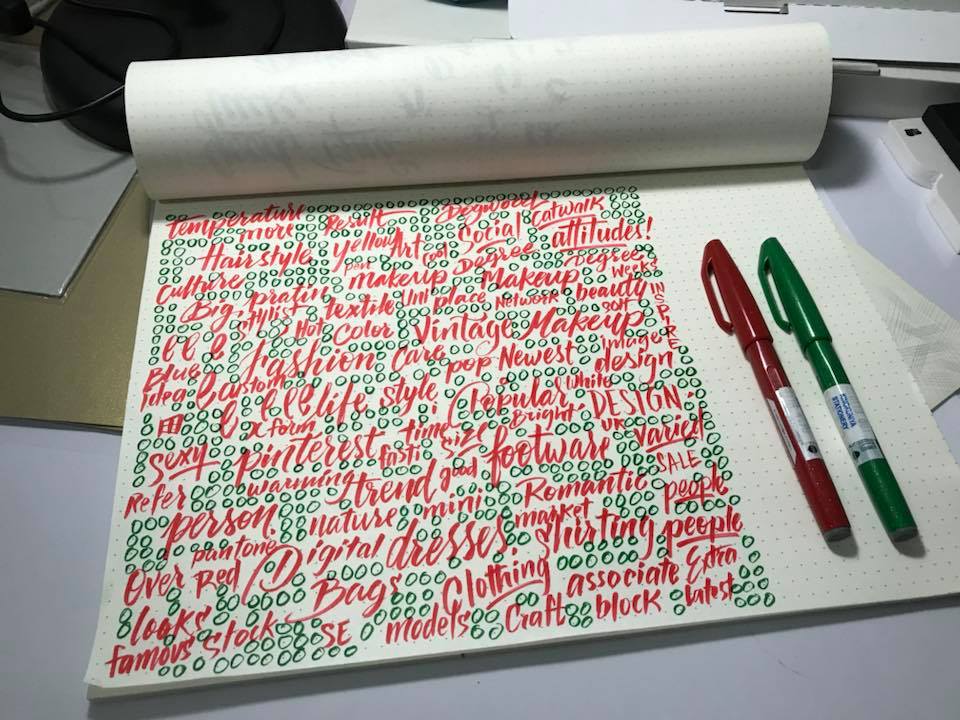 temperature Result Catwalk
more Yellow Art Cool Social attitudes!
Hairstyle pen makeup Degree Makeup Degree
Culture Weeks
Big, stylist textile Uni place Network beauty INSPIRE
Hot Color Vintage Makeup soft
Blue Fashion Care pop Newest Image design
Idea Custom life style Popular white
x form time size Bright DESIGN.
sexy pinterest fasti good footware UK varied
Refer warnning trend mini Romantic SALE people
person nature market shirting people
pantone Digital dresses Extra
Over Red Bags Clothing associate latest
looks Stock SE models Craft block
famous